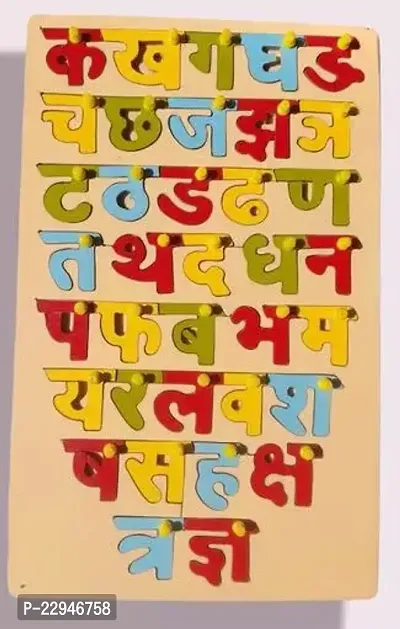 क ख ग घ ङ
च छ ज झ ञ
ट ठ ड ढ ण
त थ द ध न
प फ ब भ म
य र ल व श
ष स ह क्ष
त्र ज्ञ
P-22946758